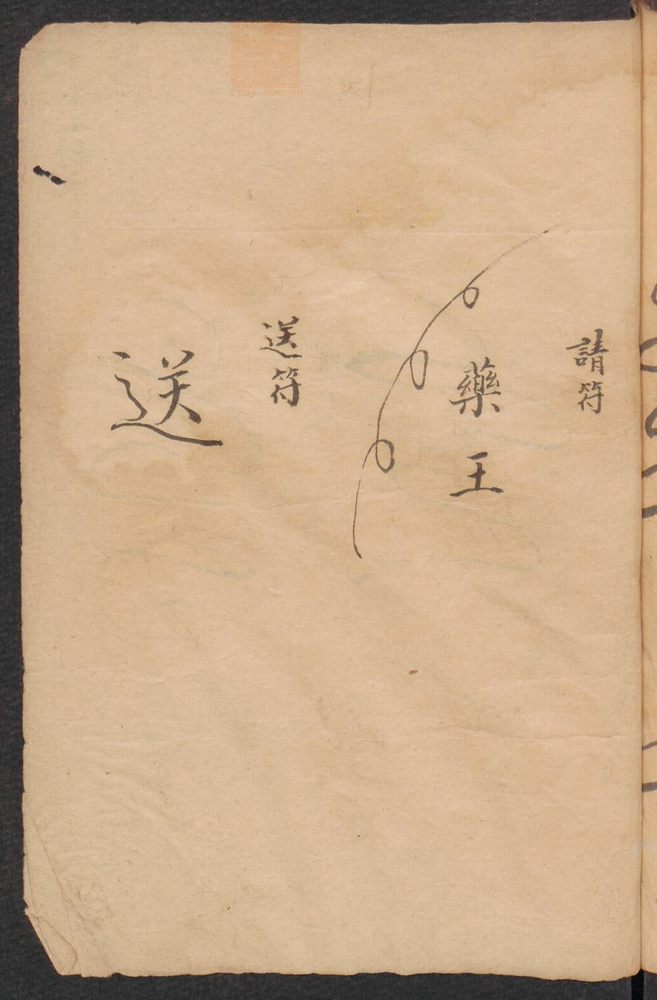 請符
藥王
送符
送